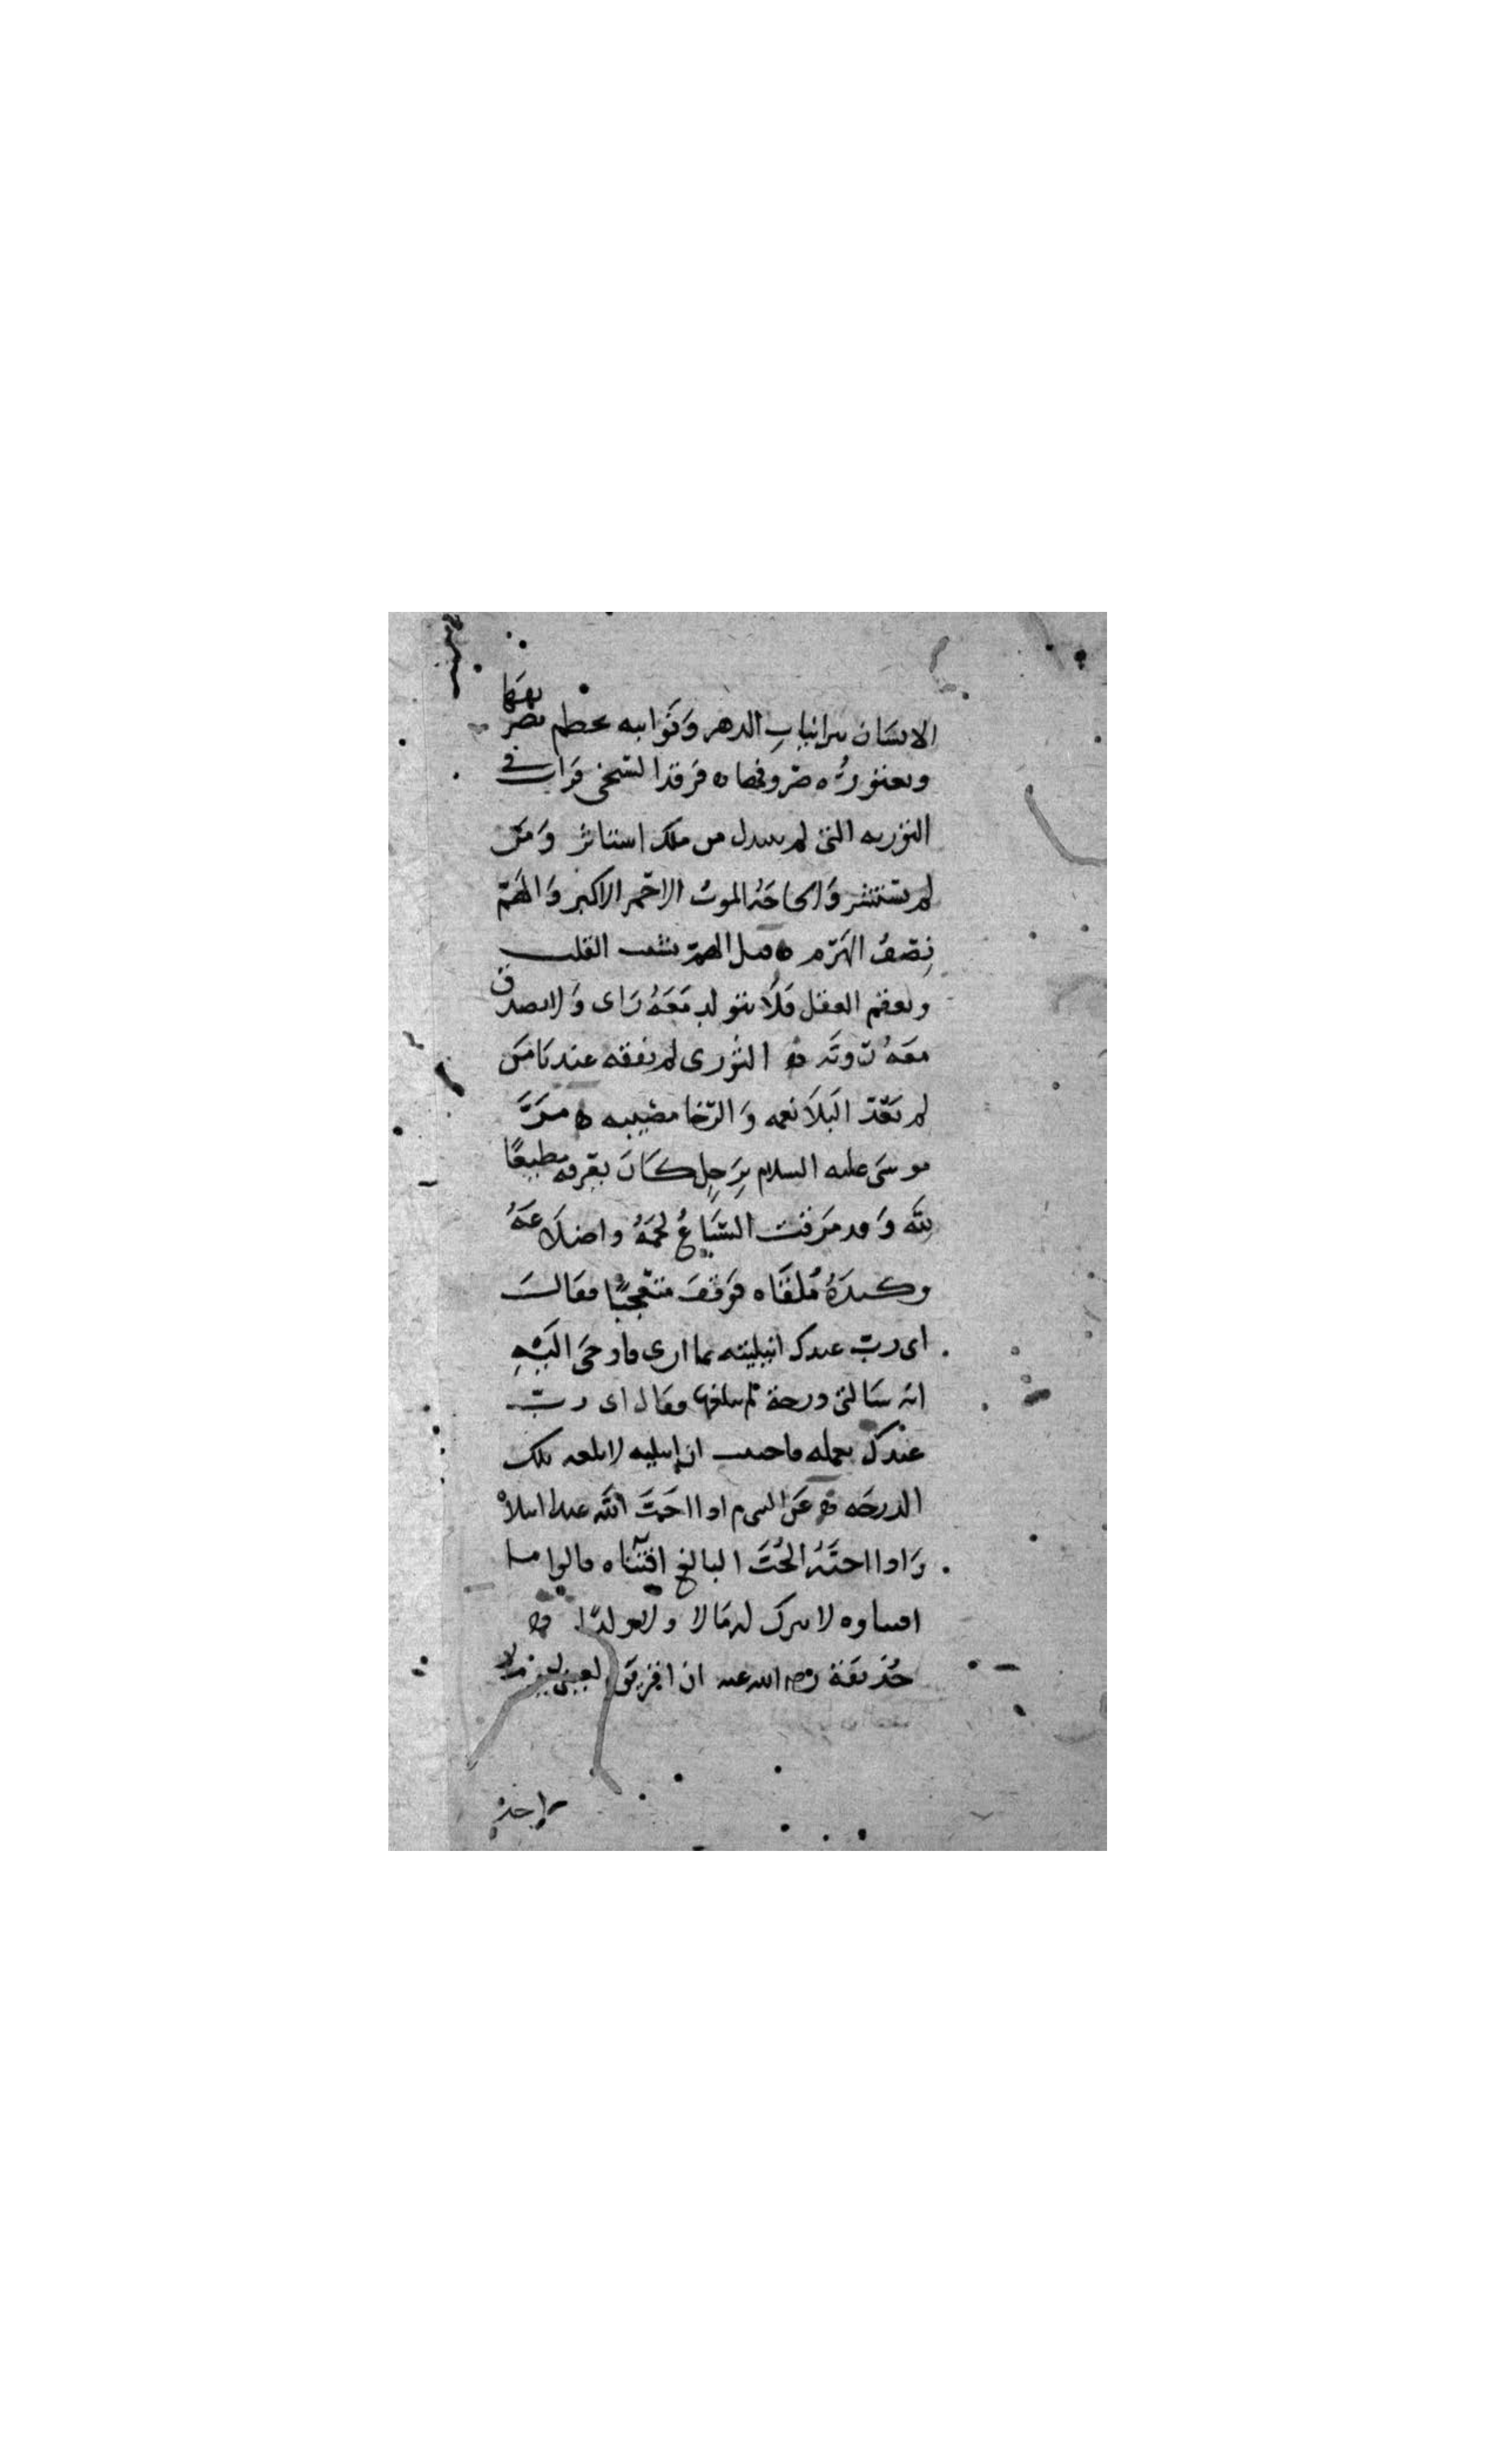 الانسان بين انياب الدهر ونوائبه يحطم بضربها
ويعتوره صروفها ٥ فرقد السبخي قرات في
التورية التي لم تبدل من ملك استاثر ومن
لم يستشر والحاجة الموت الاحمر الاكبر والهم
نصف الهرم ٥ قيل الهم يشيب القلب
ويعقم العقل فلا يتولد معه راى ولا يصدق
معه روية ٥ الثورى لم يفقه عندنا من
لم يعد البلا نعمه والرخا مصيبه ٥ مر
موسى عليه السلام برجل كان يعرفه مطيعا
لله وقد مزقت السباع لحمه واضلاعه
وكبده ملقاه فوقف متعجبا فقال
اى رب عبدك ابتليته بما ارى فاوحى اليه
انه سالنى درجة لم يبلغها بعمله فقال اى رب
عبدك بعمله فاحببت ان ابتليه لابلغه تلك
الدرجه ٥ عن النبي م اذا احب الله عبدا ابتلاه
واذا احبه الحب البالغ اقتناه قالوا ما
اقتناوه لا يترك له مالا ولا ولدا ٥
حذيفة رضي الله عنه ان اقر يوم لعيني ليوم لا
اجد